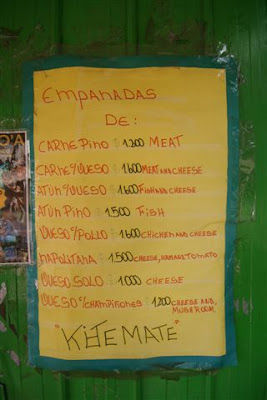 EMPANADAS
DE:
CARNE PINO $ 1.200 MEAT
CARNE/QUESO $ 1.600 MEAT AND CHEESE
ATÚN/QUESO $ 1.600 FISH AND CHEESE
ATÚN PINO $ 1.500 FISH
QUESO/POLLO $ 1.600 CHICHEN AND CHEESE
NAPOLITANA $ 1.500 CHEESE, HAM AND TOMATO
QUESO SOLO $ 1.000 CHEESE
QUESO/CHAMPIÑONES $ 1.200 CHEESE AND,
MUSHROOM.
"KITE MATE"